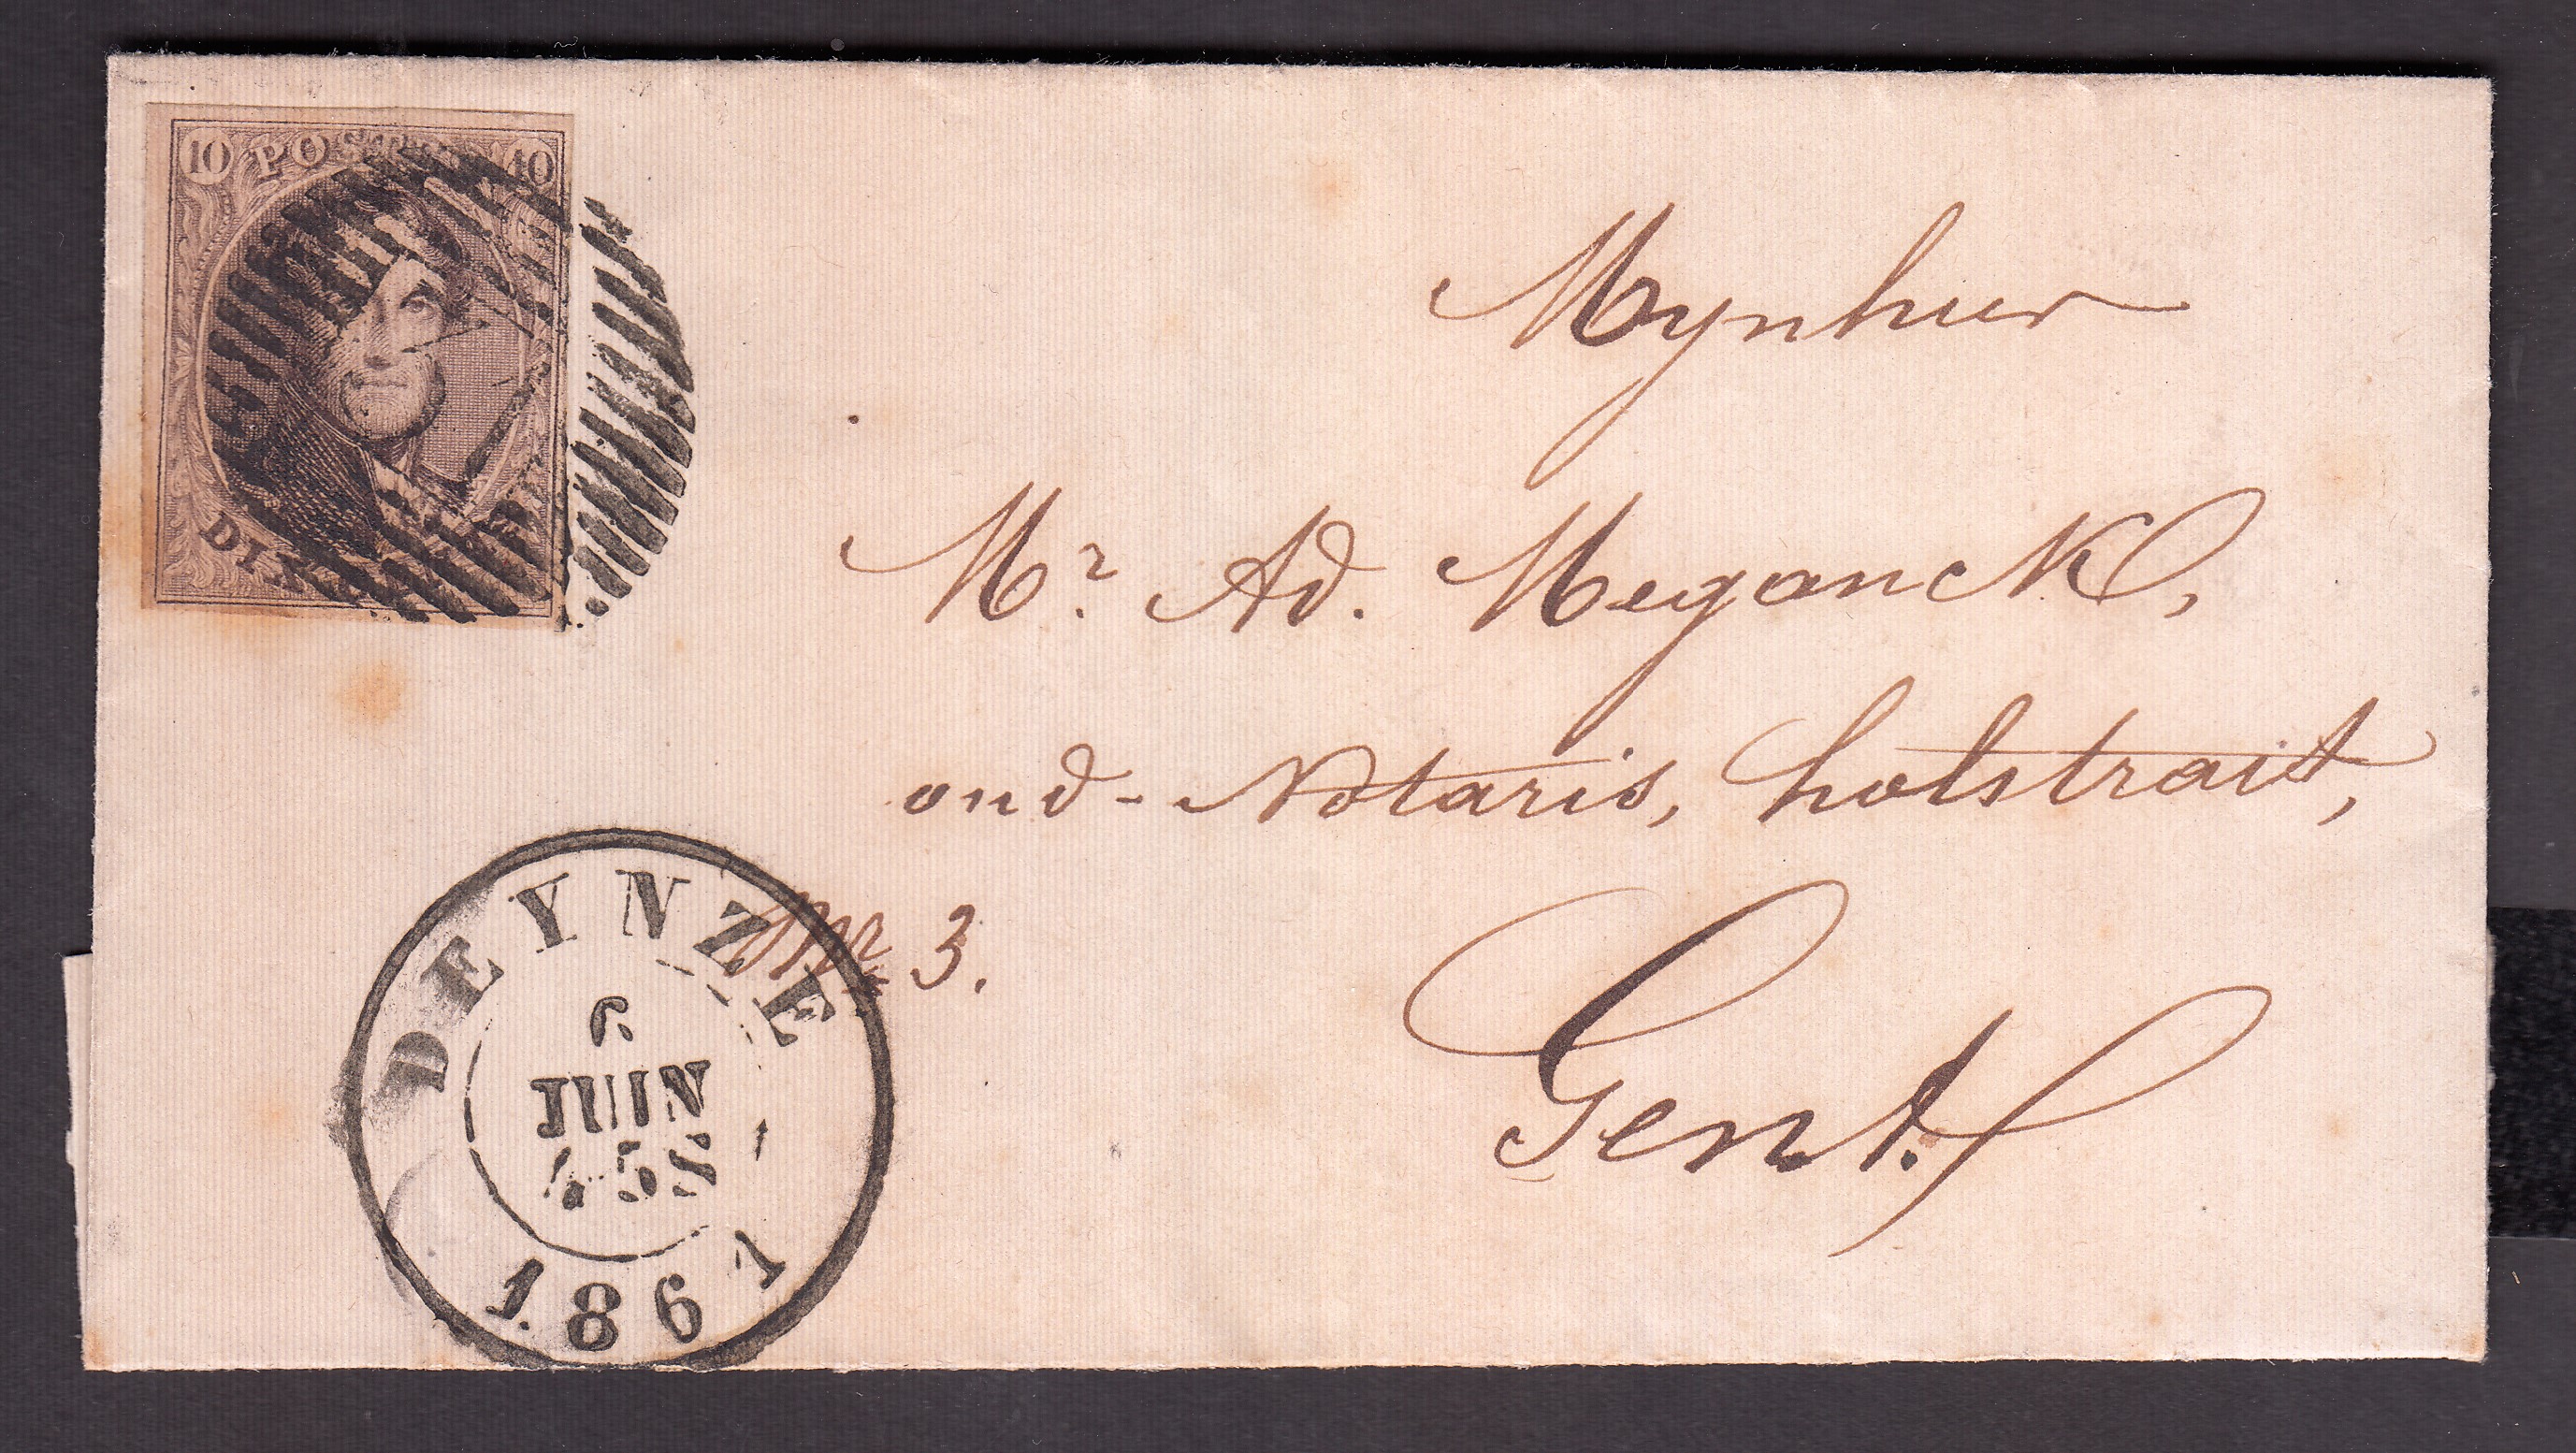 10 POSTES 10
DIX
Mynheer
Mr. Ad. Meganck,
oud-Notaris, holstraat,
Nr 3.
Gent.
DEYNZE
6
JUIN
1861